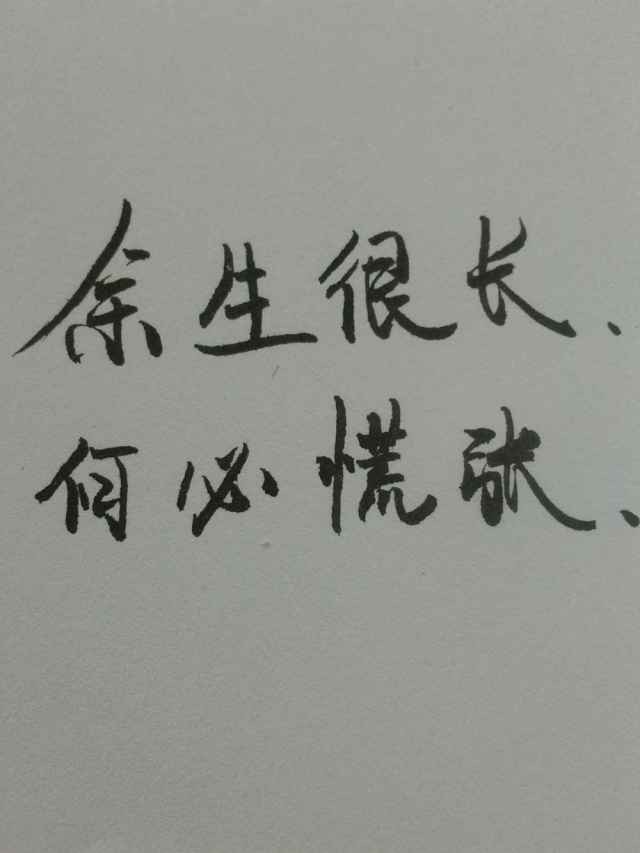 余生很长、
何必慌张、